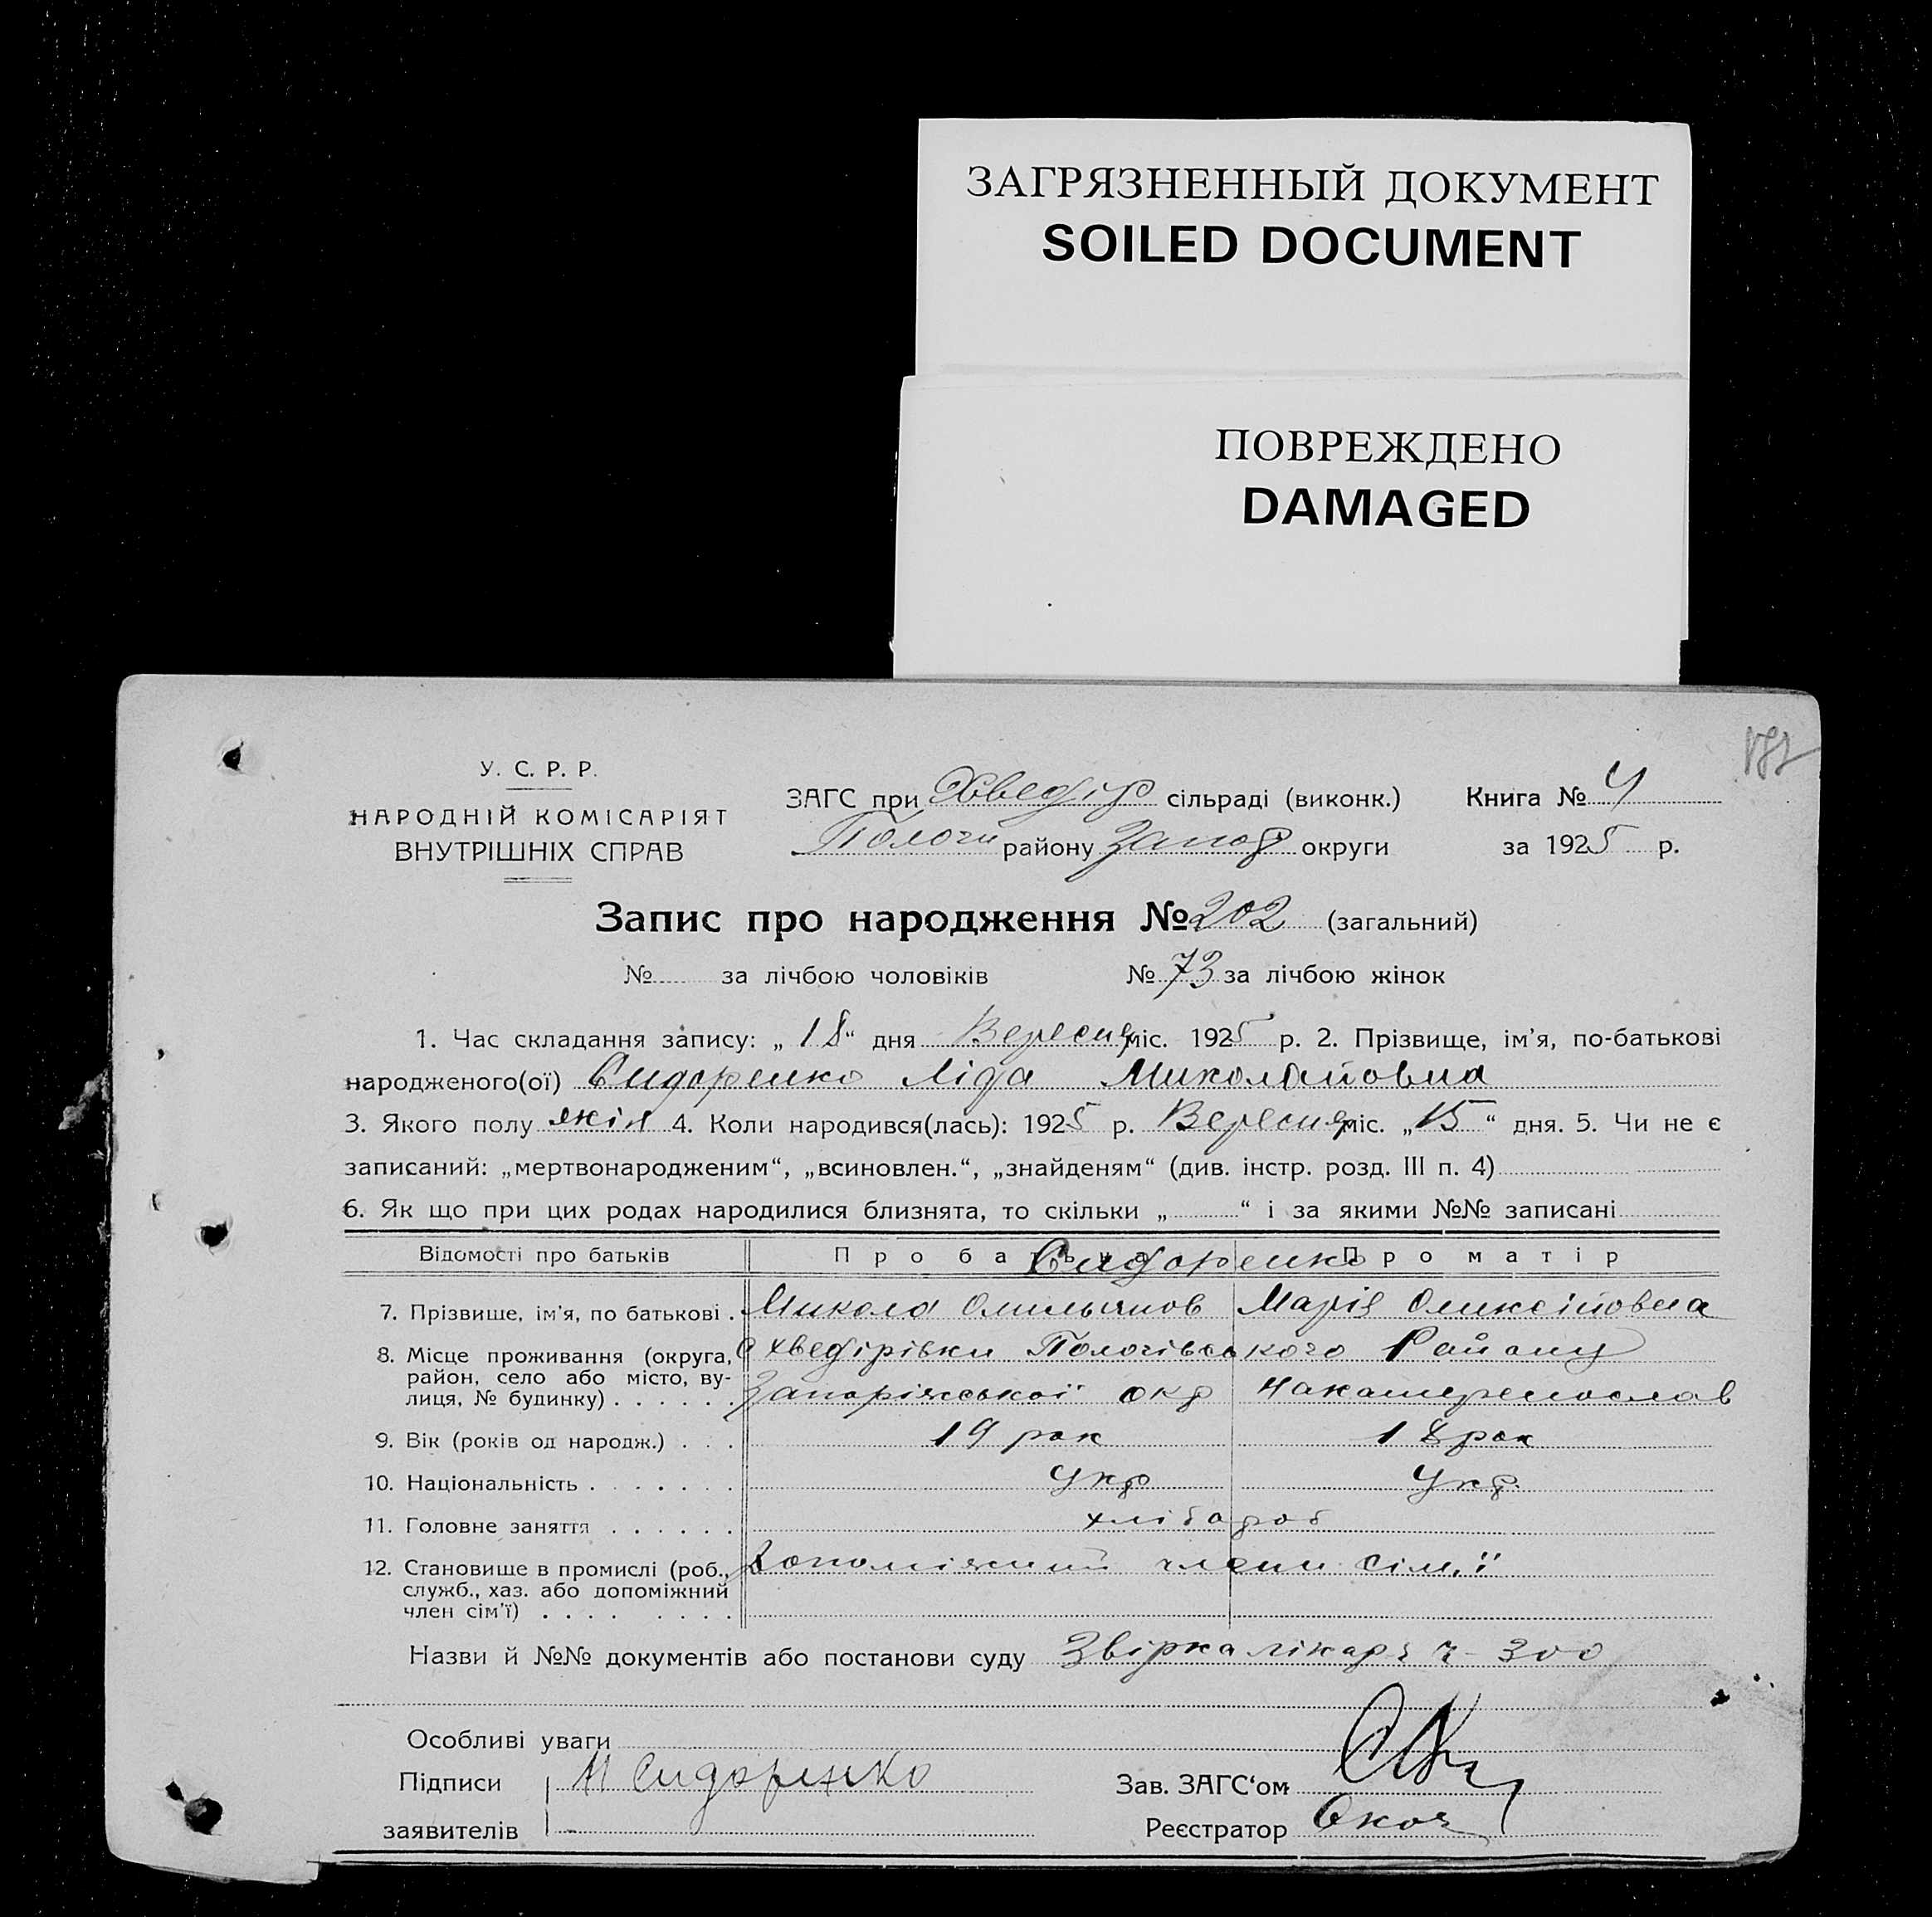 ЗАГРЯЗНЕННЫЙ ДОКУМЕНТ
SOILED DOCUMENT
ПОВРЕЖДЕНО
DAMAGED
У. С. Р. Р.
НАРОДНІЙ КОМІСАРІЯТ
ВНУТРІШНІХ СПРАВ
ЗАГС при Хведір сільраді (виконк.) Книга № 4
Пологи району Запор округи за 1925 р.
Запис про народження № 202 (загальний)
№ за лічбою чоловіків № 73 за лічбою жінок
1. Час складання запису: „ 18 “ дня Вересня міс. 1925 р. 2. Прізвище, ім'я, по-батькові
народженого(ої) Сидоренко Ліда Миколайовна
3. Якого полу жін 4. Коли народився(лась): 1925 р. Вересня міс. „ 15 “ дня. 5. Чи не є
записаний: „мертвонародженим“, „всиновлен.“, „знайденям“ (див. інстр. розд. III п. 4)
6. Як що при цих родах народилися близнята, то скільки „ “ і за якими №№ записані
Відомості про батьків Про батька Про матір
Сидоренко
7. Прізвище, ім'я, по батькові . Микола Омельянов Марія Олексійовна
8. Місце проживання (округа, Хведірівки Пологівського Району
район, село або місто, ву-
лиця, № будинку) . . . . . . Запоріжської окр
9. Вік (років од народж.) . . . 19 рок 18 рок
10. Національність . . . . . . . Укр Укр.
11. Головне заняття . . . . . . хлібороб
12. Становище в промислі (роб., Допоміжний члени сім'ї
служб., хаз. або допоміжний
член сім'ї) . . . . . . . .
Назви й №№ документів або постанови суду лікаря ч - 300
Особливі уваги
Підписи М Сидоренко Зав. ЗАГС‘ом
заявителів Реєстратор